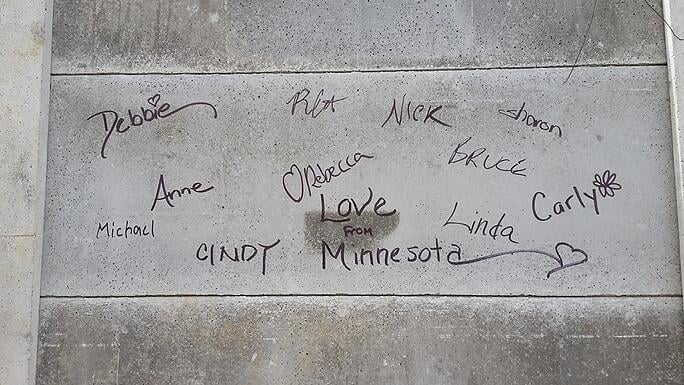 Debbie
NICK
Sharon
BRUCE
Rebecca
Anne
LOVE
Carly
Linda
Michael
FROM
CINDY
Minnesota